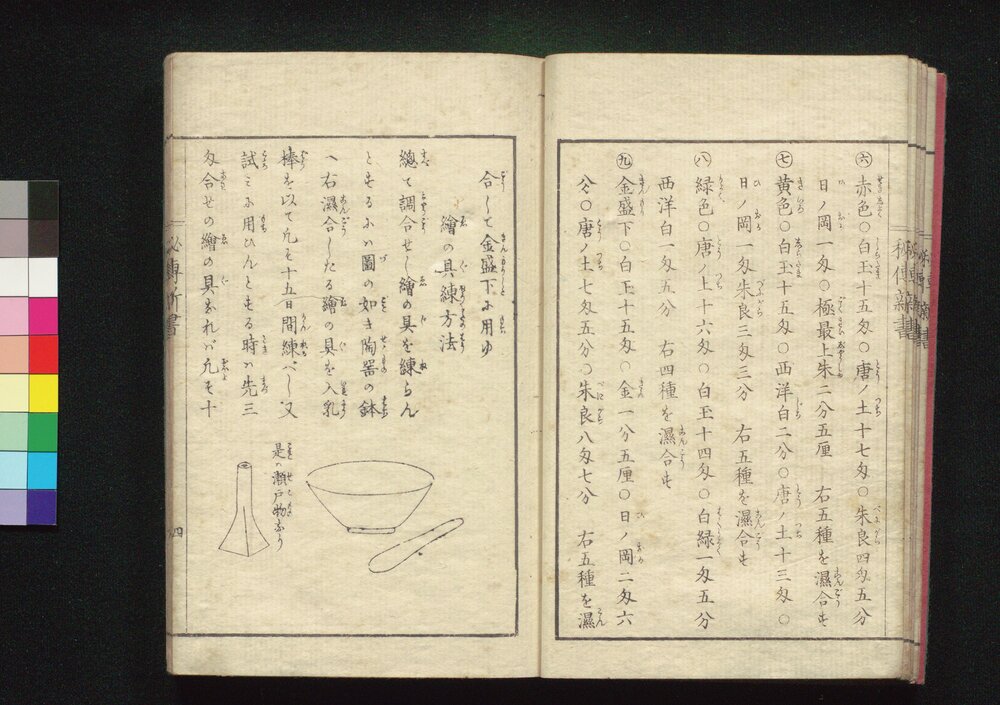 ㊅赤色〇白玉十五匁〇唐ノ土十七匁〇朱良四匁五分
日ノ岡一匁〇極最上朱二分五厘 右五種を濕合す
㊆黄色〇白玉十五匁〇西洋白二分〇唐ノ土十三匁〇
日ノ岡一匁朱良三匁三分 右五種を濕合す
㊇緑色〇唐ノ上十六匁〇白玉十四匁〇白緑一匁五分
西洋白一匁五分 右四種を濕合す
㊈金盛下〇白玉十五匁〇金一分五厘〇日ノ岡二匁六
分〇唐ノ土七匁五分〇朱良八匁七分 右五種を濕
合して金盛下に用ゆ
繪の具練方法
總て調合せし繪の具を練らん
とするにハ圖の如き陶噐の鉢
へ右濕合したる繪の具を入乳
棒を以て凡そ十五日間練べし又
試ミに用ひんとする時ハ先三
匁合せの繪の具なれバ凡そ十
是ハ瀬戸物なり
秘傳新書
四